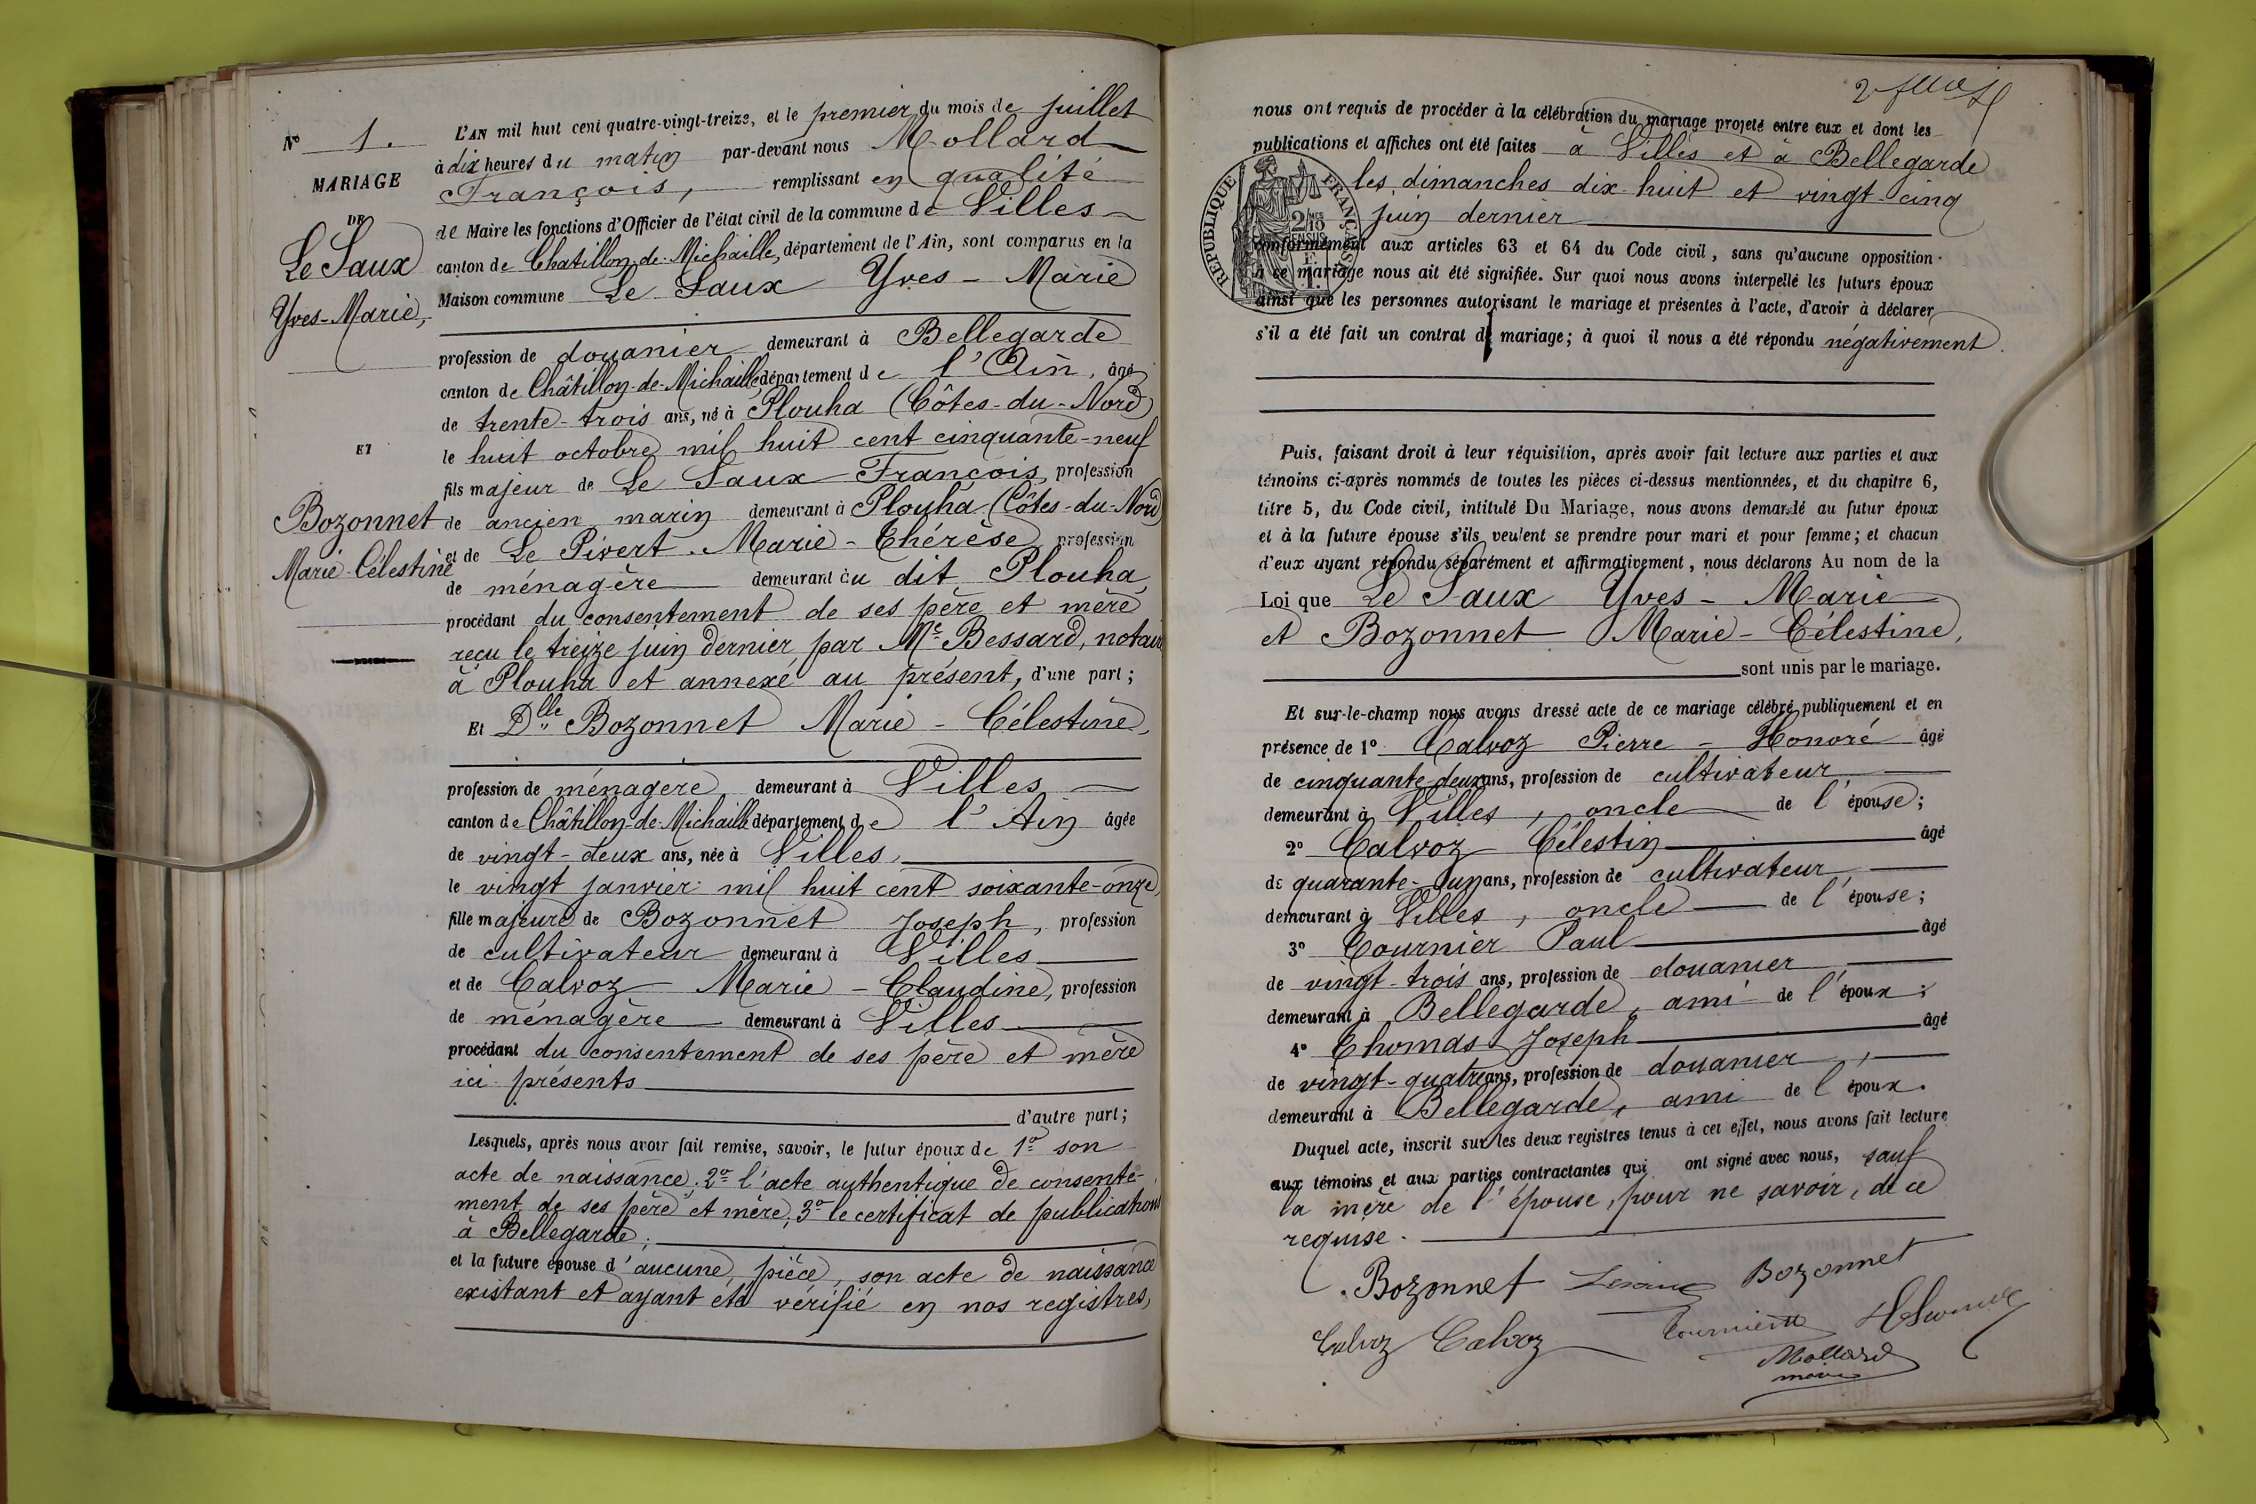 N° 1.
MARIAGE
DE
Le Saux
Yves-Marie,
ET
Bozonnet
Marie-Célestine
L'AN mil huit cent quatre-vingt-treize, et le premier du mois de juillet
à dix heures du matin par-devant nous Mollard
François, remplissant en qualité
de Maire les fonctions d'Officier de l'état civil de la commune de Villes
canton de Chatillon-de-Michaille, département de l'Ain, sont comparus en la
Maison commune Le Saux Yves-Marie
profession de douanier demeurant à Bellegarde
canton de Châtillon-de-Michaille département de l'Ain, âgé
de trente-trois ans, né à Plouha (Côtes-du-Nord)
le huit octobre mil huit cent cinquante-neuf
fils majeur de Le Saux François, profession
de ancien marin demeurant à Plouha (Côtes-du-Nord)
et de Le Pivert Marie-Thérèse, profession
de ménagère demeurant au dit Plouha,
procédant du consentement de ses père et mère
reçu le treize juin dernier par Me Bessard, notaire
à Plouha et annexé au présent, d'une part;
Et Dlle Bozonnet Marie-Célestine,
profession de ménagère demeurant à Villes
canton de Châtillon-de-Michaille département de l'Ain âgée
de vingt-deux ans, née à Villes,
le vingt janvier mil huit cent soixante-onze,
fille majeure de Bozonnet Joseph, profession
de cultivateur demeurant à Villes
et de Calvoz Marie-Claudine, profession
de ménagère demeurant à Villes
procédant du consentement de ses père et mère
ici présents
d'autre part;
Lesquels, après nous avoir fait remise, savoir, le futur époux de 1° son
acte de naissance, 2° l'acte authentique de consente-
ment de ses père et mère, 3° le certificat de publications
à Bellegarde;
et la future épouse d'aucune pièce, son acte de naissance
existant et ayant été vérifié en nos registres,
nous ont requis de procéder à la célébration du mariage projeté entre eux et dont les
publications et affiches ont été faites à Villes et à Bellegarde
les dimanches dix-huit et vingt-cinq
juin dernier
RÉPUBLIQUE FRANÇAISE
conformément aux articles 63 et 64 du Code civil, sans qu'aucune opposition
à ce mariage nous ait été signifiée. Sur quoi nous avons interpellé les futurs époux
ainsi que les personnes autorisant le mariage et présentes à l'acte, d'avoir à déclarer
s'il a été fait un contrat de mariage; à quoi il nous a été répondu négativement.
Puis, faisant droit à leur réquisition, après avoir fait lecture aux parties et aux
témoins ci-après nommés de toutes les pièces ci-dessus mentionnées, et du chapitre 6,
titre 5, du Code civil, intitulé Du Mariage, nous avons demandé au futur époux
et à la future épouse s'ils veulent se prendre pour mari et pour femme; et chacun
d'eux ayant répondu séparément et affirmativement, nous déclarons Au nom de la
Loi que Le Saux Yves-Marie
et Bozonnet Marie-Célestine,
sont unis par le mariage.
Et sur-le-champ nous avons dressé acte de ce mariage célébré publiquement et en
présence de 1° Calvoz Pierre-Honoré âgé
de cinquante-deux ans, profession de cultivateur,
demeurant à Villes, oncle de l'épouse;
2° Calvoz Célestin âgé
de quarante-un ans, profession de cultivateur,
demeurant à Villes, oncle de l'épouse;
3° Tournier Paul âgé
de vingt-trois ans, profession de douanier
demeurant à Bellegarde, ami de l'époux;
4° Thomas Joseph âgé
de vingt-quatre ans, profession de douanier,
demeurant à Bellegarde, ami de l'époux.
Duquel acte, inscrit sur les deux registres tenus à cet effet, nous avons fait lecture
aux témoins et aux parties contractantes qui ont signé avec nous, sauf
la mère de l'épouse, pour ne savoir, de ce
requise.
Bozonnet Bozonnet
Calvoz Calvoz
Mollard
maire